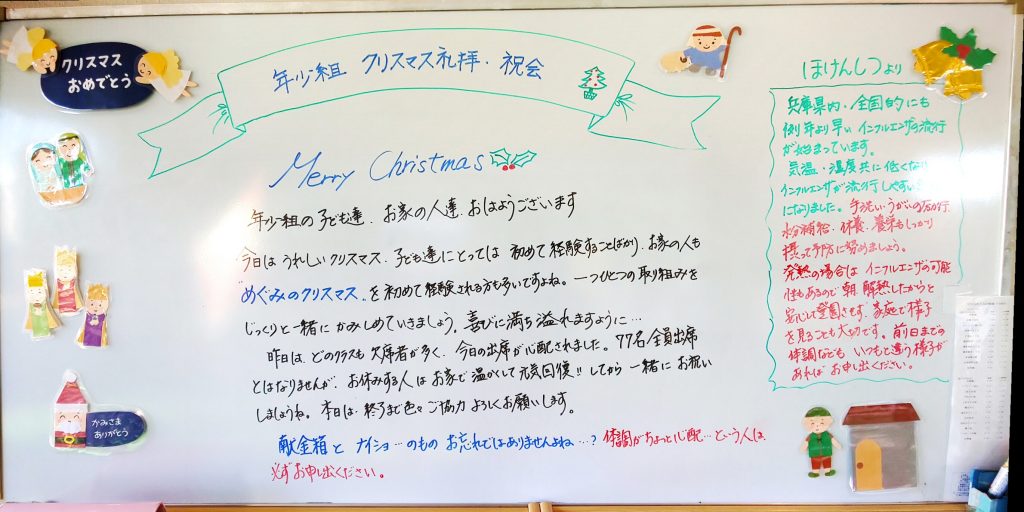 クリスマス
おめでとう
年少組 クリスマス礼拝・祝会
Merry Christmas
年少組の子ども達、お家の人達、おはようございます
今日は うれしいクリスマス、子ども達にとっては 初めて経験することばかり、お家の人も
"めぐみのクリスマス" を初めて経験される方も多いですよね。一つひとつの取り組みを
じっくりと一緒に かみしめていきましょう。喜びに満ち溢れますように…
昨日は、どのクラスも 欠席者が多く、今日の出席が心配されました。77名全員出席
とはなりませんが、お休みする人は お家で 温かくして 元気回復!! してから 一緒に お祝い
しましょうね。本日は、終了まで色々ご協力 よろしくお願いします。
献金箱と ナイショ…のもの お忘れではありませんよね…? 体調がちょっと心配…という人は、
必ずお申し出ください。
かみさま
ありがとう
ほけんしつより
兵庫県内・全国的にも
例年より早い インフルエンザの流行
が始まっています。
気温・湿度共に低くなり
インフルエンザが流行しやすい
になりました。手洗い・うがいの
水分補給・休養・栄養もしっかり
摂って予防に努めましょう。
発熱の場合は インフルエンザの可能
性もあるので 朝、解熱したからと
安心して登園させず、家庭で様子
を見ることも大切です。前日までの
体調なども いつもと違う様子が
あれば お申し出ください。